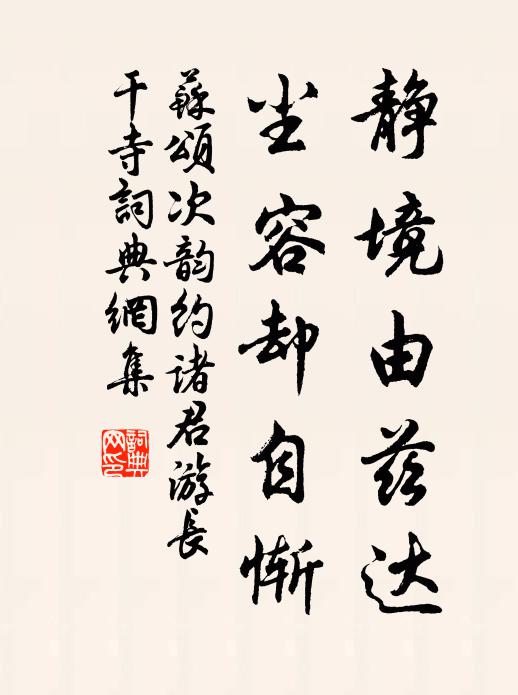 静境由兹达
尘容却自惭
蘇頌次韵约諸君游長
干寺詞典網集
詞典
网印